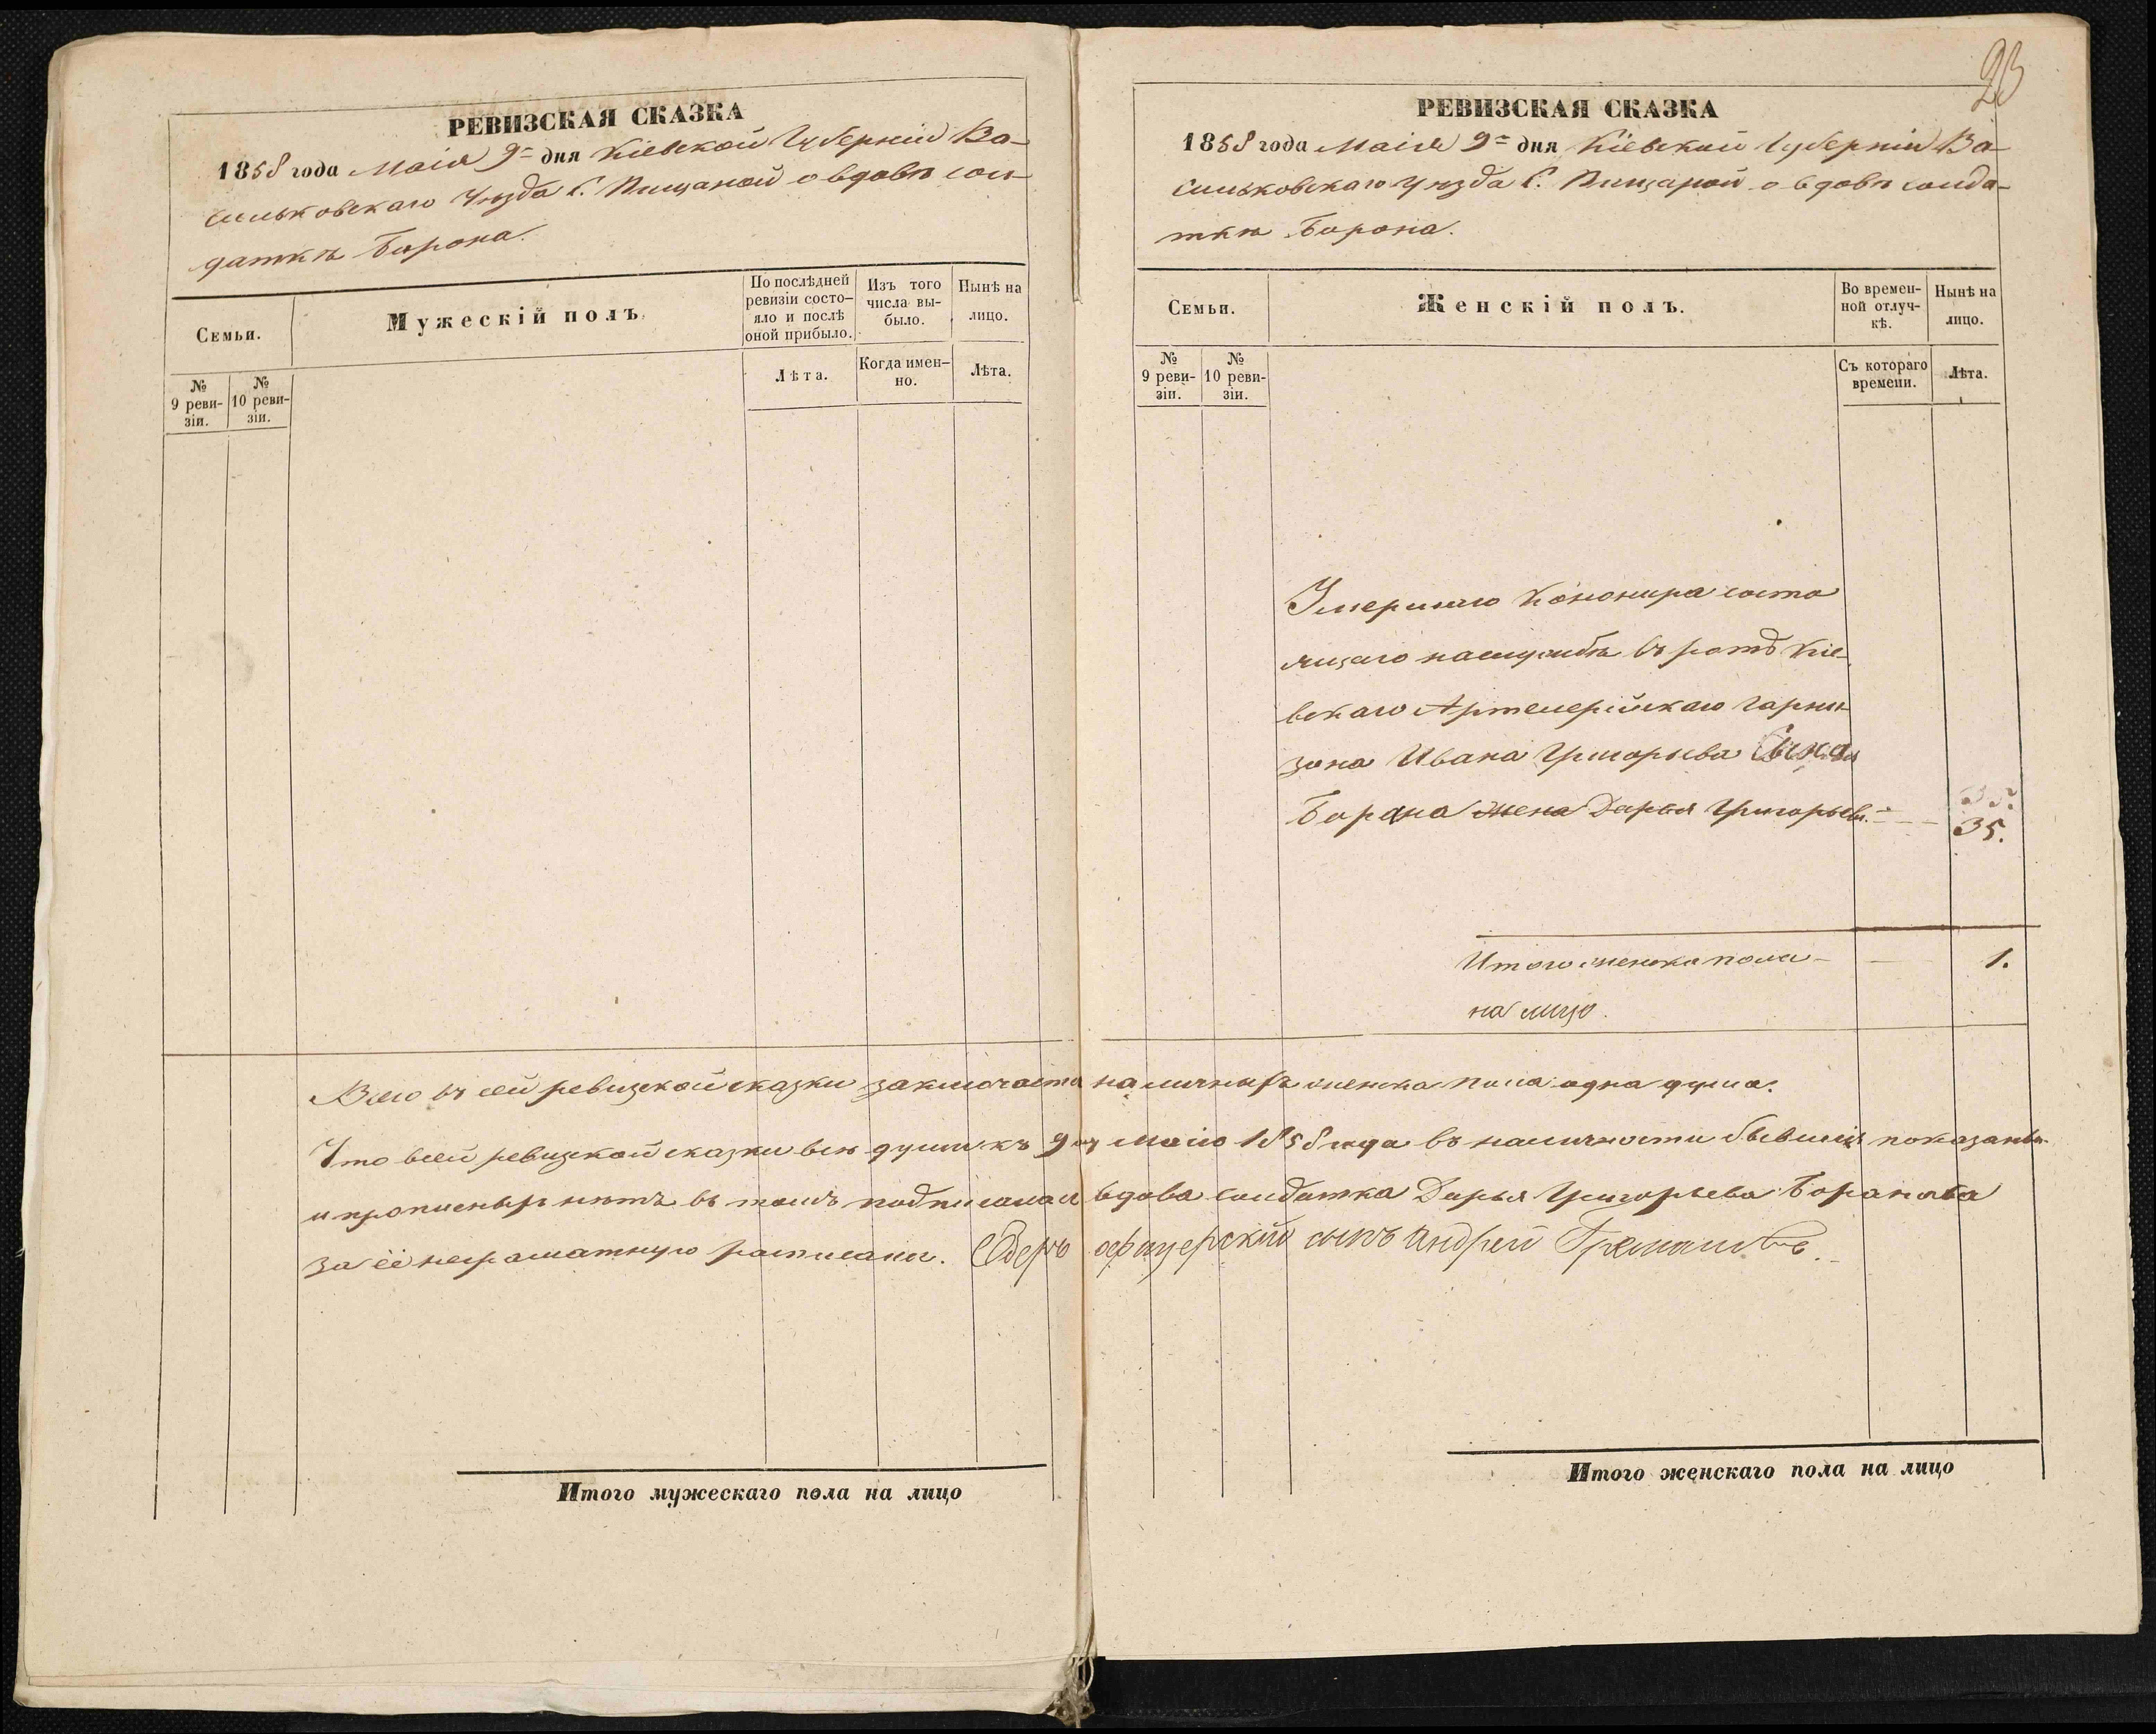 РЕВИЗСКАЯ СКАЗКА
1858 года Маія 9го дня Кіевской Губерніи Ва-
сильковскаго Уѣзда С. Пищаной о вдовѣ сол-
даткѣ Барона.
Семьи.
Мужескій полъ
По послѣдней ревизіи состо-яло и послѣ оной прибыло.
Изъ того числа вы-было.
Нынѣ на лицо.
№ 9 реви-зіи.
№ 10 реви-зіи.
Лѣта.
Когда имен-но.
Лѣта.
Итого мужескаго пола на лицо
23
РЕВИЗСКАЯ СКАЗКА
1858 года Маія 9го дня Кіевской Губерніи Ва-
сильковскаго Уѣзда С. Пищаной о вдовѣ солда-
ткѣ Барона.
Семьи.
Женскій полъ.
Во времен-ной отлуч-кѣ.
Нынѣ на лицо.
№ 9 реви-зіи.
№ 10 реви-зіи.
Съ котораго времени.
Лѣта.
Умершаго Канонира состо
ящаго на службѣ въ ротѣ Кіе-
вскаго Артелерійскаго гарни-
зона Ивана Григорьева Сына
Барана жена Дарья Григорьев. 35.
Итого женска пола - - 1.
на лицо.
Всего въ сей ревизской сказки заключаетца наличныхъ женска пола одна душа.
Что в сей ревизской сказки всѣ души къ 9му Маію 1858 года въ наличности бывшія показаны
и прописныхъ нѣтъ въ томъ подписалась вдова солдатка Дарья Григорьева Баранова
за её неграматную росписался. Оберъ офицерскій сынъ Андрей
Итого женскаго пола на лицо